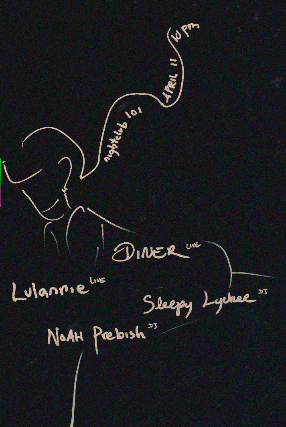 10 pm
APRIL 11
nightclub 101
DINER LIVE
Lulannie LIVE
Sleepy Lychee DJ
NOAH Prebish DJ